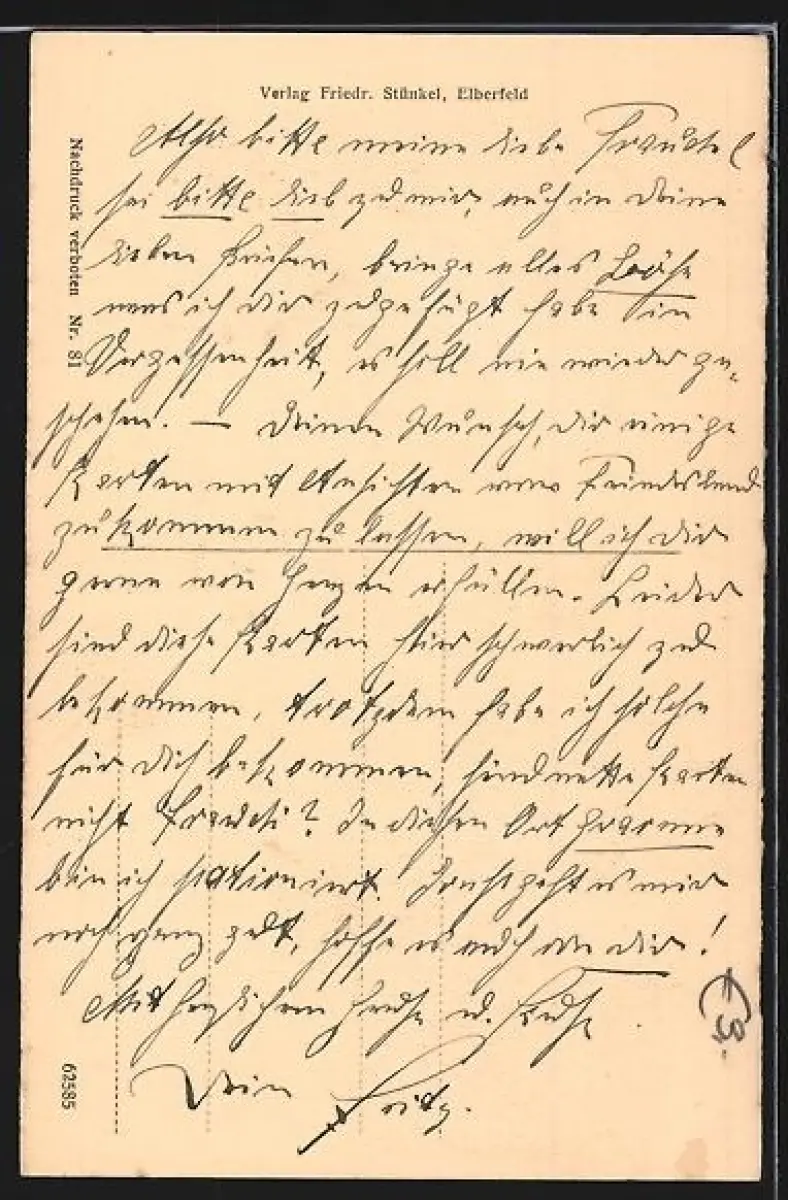 Verlag Friedr. Stünkel, Elberfeld
Nachdruck verboten Nr. 81
Also bitte meine liebe
sei bitte lieb zu mir, auch in Deine
lieben Briefen, bringe alles Böse
was ich dir zugefügt habe in
Vergessenheit, es soll nie wieder ge-
schehen. — Deinen Wunsch, dir einige
Karten mit Ansichten vom Feindesland
zukommen zu lassen, will ich dir
gerne von Herzen erfüllen. Leider
sind diese Karten hier schwerlich zu
bekommen, trotzdem habe ich solche
für dich bekommen, sind nette Karten
nicht ? In diesen Ort
bin ich stationiert. Sonst geht es mir
noch ganz gut, hoffe es auch von dir!
Mit herzlichem Gruße u. Kuße
Dein Fritz.
62585